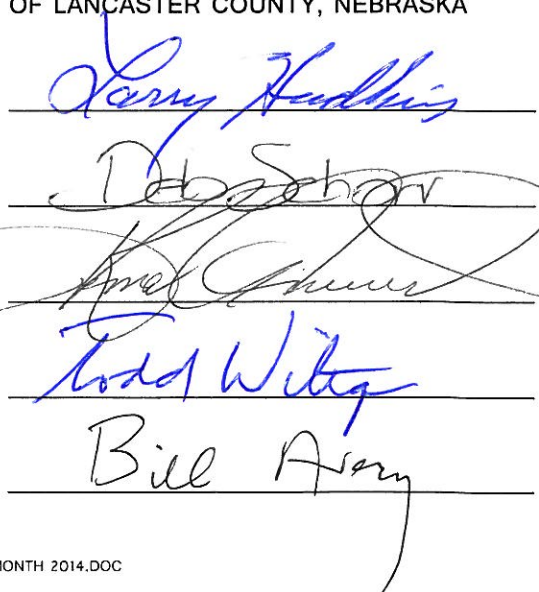 OF LANCASTER COUNTY, NEBRASKA
Larry Hudkins
Deb Schorr
Todd Wiltgen
Bill Avery
MONTH 2014.DOC